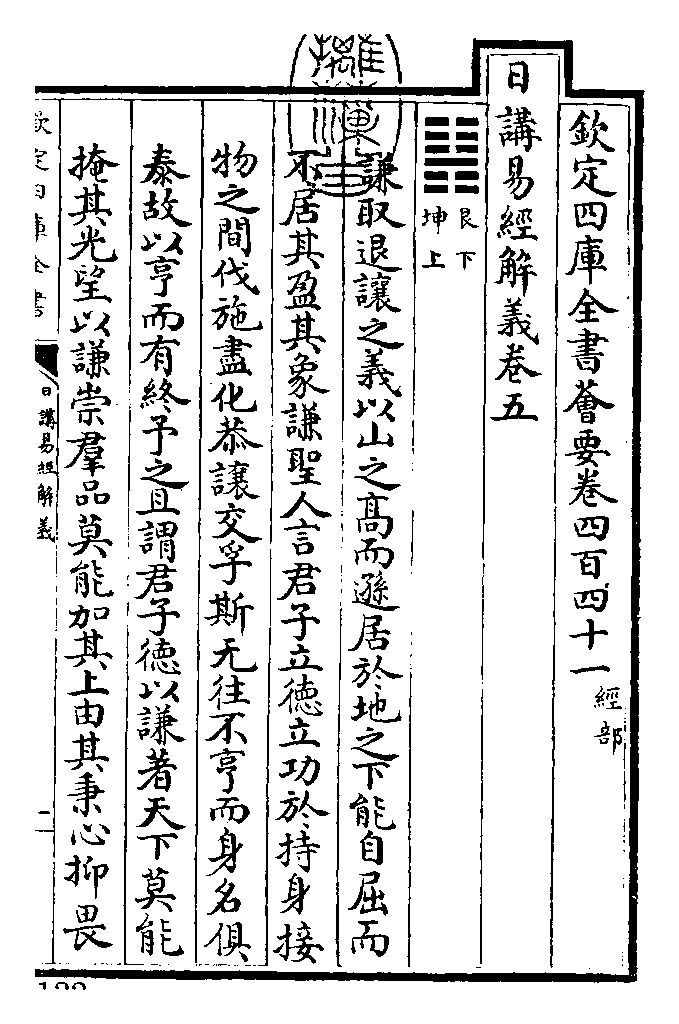 欽定四庫全書薈要卷四百四十一 經部
日講易經解義卷五
艮下
坤上
謙取退讓之義以山之高而遜居於地之下能自屈而
不居其盈其象謙聖人言君子立德立功於持身接
物之間伐施盡化恭讓交孚斯无往不亨而身名俱
泰故以亨而有終予之且謂君子德以謙著天下莫能
掩其光望以謙崇羣品莫能加其上由其秉心抑畏
欽定四庫全書
日講易經解義
二